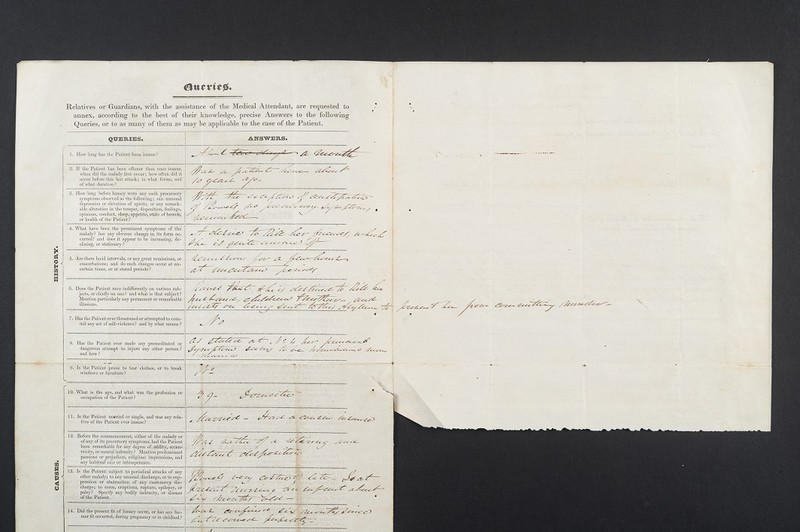 Queries.
Relatives or Guardians, with the assistance of the Medical Attendant, are requested to
annex, according to the best of their knowledge, precise Answers to the following
Queries, or to as many of them as may be applicable to the case of the Patient.
QUERIES. ANSWERS.
HISTORY.
1. How long has the Patient been insane?
a month
2. If the Patient has been offener than once insane,
when did the malady first occur; how often did it
occur before this last attack; in what forms, and
of what duration?
Was a patient here about
10 years ago.
3. How long before lunacy were any such precursory
symptoms observed as the following; viz. unusual
depression or elevation of spirits, or any remark-
able alteration in the temper, disposition, feelings,
opinions, conduct, sleep, appetite, state of bowels,
or health of the Patient?
With the exception of constipation
of Bowels no precursory symptoms
remarked
4. What have been the prominent symptoms of the
malady? has any obvious change in its form oc-
curred? and does it appear to be increasing, de-
clining, or stationary?
A desire to kill her friends, which
she is quite aware of
5. Are there lucid intervals, or any great remissions, or
exacerbations; and do such changes occur at un-
certain times, or at stated periods?
Remission for a few hours
at uncertain periods
6. Does the Patient rave indifferently on various sub-
jects, or chiefly on one? and what is that subject?
Mention particularly any permanent or remarkable
illusions.
Raves that she is destined to kill her
husband, children & brothers and
insists on being sent to this Asylum to prevent her from committing murder
7. Has the Patient ever threatened or attempted to com-
mit any act of self-violence? and by what means?
No
8. Has the Patient ever made any premeditated or
dangerous attempt to injure any other person?
and how?
as stated at No. 6 her prominent
symptom seems to be homicidal mono
mania
9. Is the Patient prone to tear clothes, or to break
windows or furniture?
No
CAUSES.
10. What is the age, and what was the profession or
occupation of the Patient?
39 - Domestic
11. Is the Patient married or single, and was any rela-
tive of the Patient ever insane?
Married - Had a cousin insane
12. Before the commencement, either of the malady or
of any of its precursory symptoms, had the Patient
been remarkable for any degree of oddity, eccen-
tricity, or mental infirmity? Mention predominant
passions or prejudices, religious impressions, and
any habitual vice or intemperance.
Was rather of a retiring and
distant disposition
13. Is the Patient subject to periodical attacks of any
other malady; to any unusual discharge, or to sup-
pression or obstruction of any customary dis-
charge; to sores, eruptions, rupture, epilepsy, or
palsy? Specify any bodily infirmity, or disease
of the Patient.
Bowels very costive of late - Is at
present nursing an infant about
six months old -
14. Did the present fit of lunacy occur, or has any for-
mer fit occurred, during pregnancy or in childbed?
Was confined six months since
but recovered perfectly -